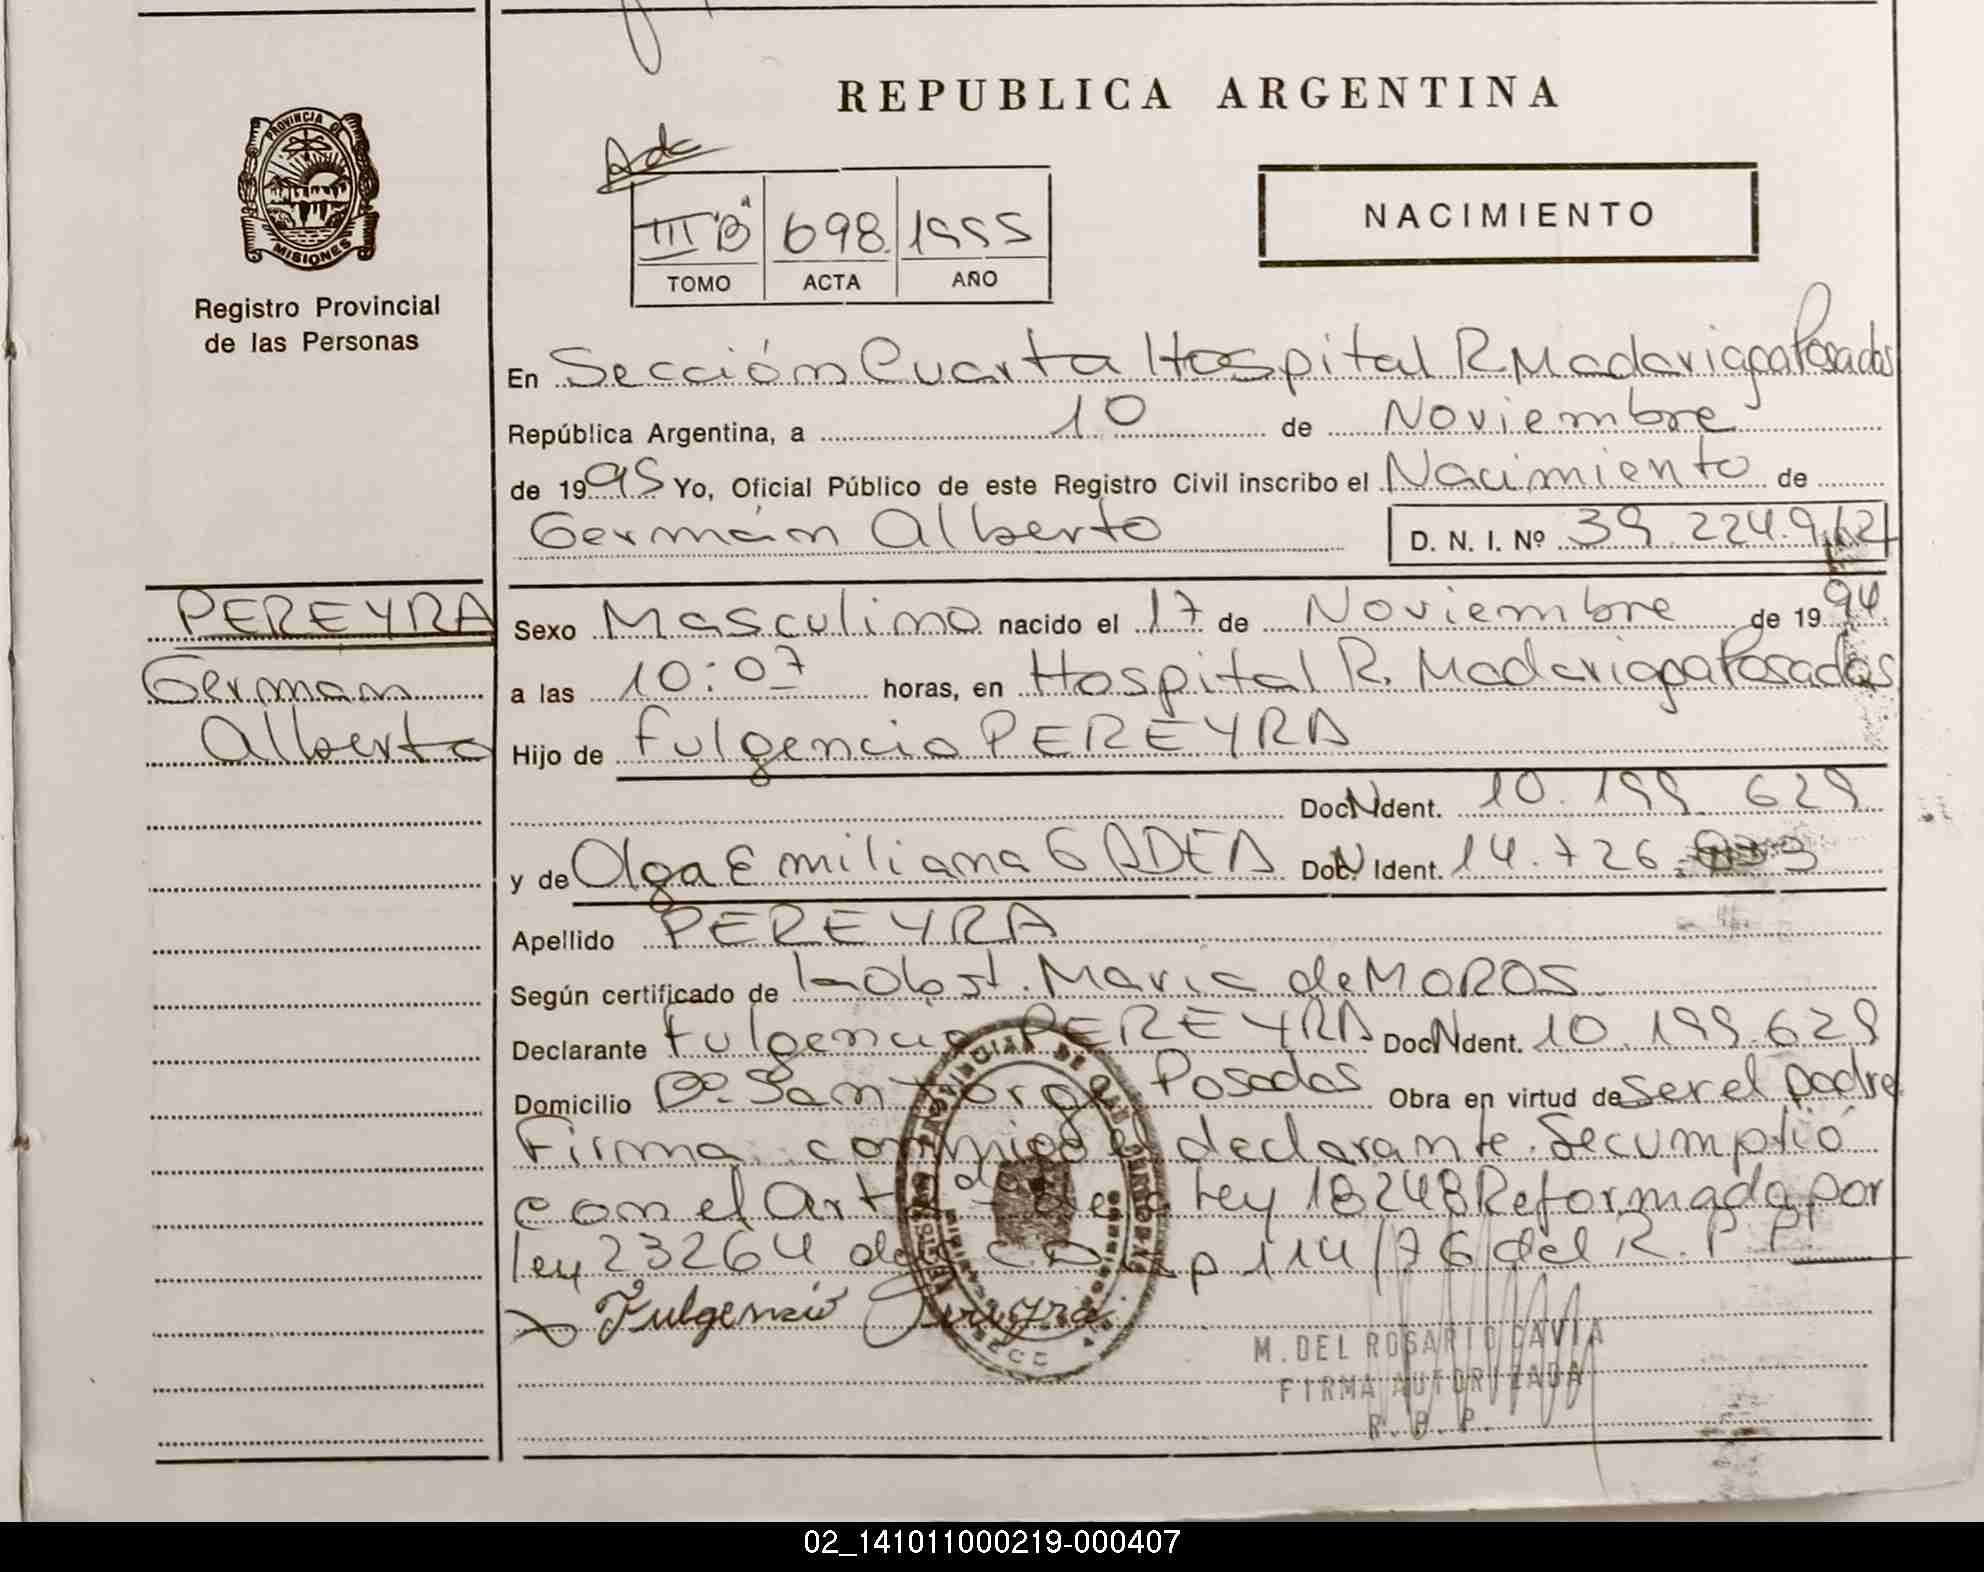 REPUBLICA ARGENTINA
PROVINCIA DE
MISIONES
Registro Provincial
de las Personas
Adc
III "B" 698 1995
TOMO ACTA AÑO
NACIMIENTO
En Sección Cuarta Hospital R Madariaga Posadas
República Argentina, a 10 de Noviembre
de 1995 Yo, Oficial Público de este Registro Civil inscribo el Nacimiento de
Germán Alberto D. N. I. Nº 39.224.912
PEREYRA
Germán
Alberto
Sexo Masculino nacido el 17 de Noviembre de 1994
a las 10:07 horas, en Hospital R. Madariaga Posadas
Hijo de Fulgencio PEREYRA
Doc N Ident. 10.199.629
y de Olga Emiliana GADEA Doc N Ident. 14.726
Apellido PEREYRA
Según certificado de la Obst. Maria de MOROS
Declarante Fulgencio PEREYRA Doc N Ident. 10.199.629
Domicilio Bº San Jorge Posadas Obra en virtud de ser el padre
Firma conmigo el declarante. Se cumplió
con el Art de la Ley 18248 Reformada por
ley 23264 Disp 114/76 del R.P.P.
Fulgencio Pereyra
M. DEL ROSARIO DAVIA
FIRMA AUTORIZADA
R. P. P.
02_141011000219-000407